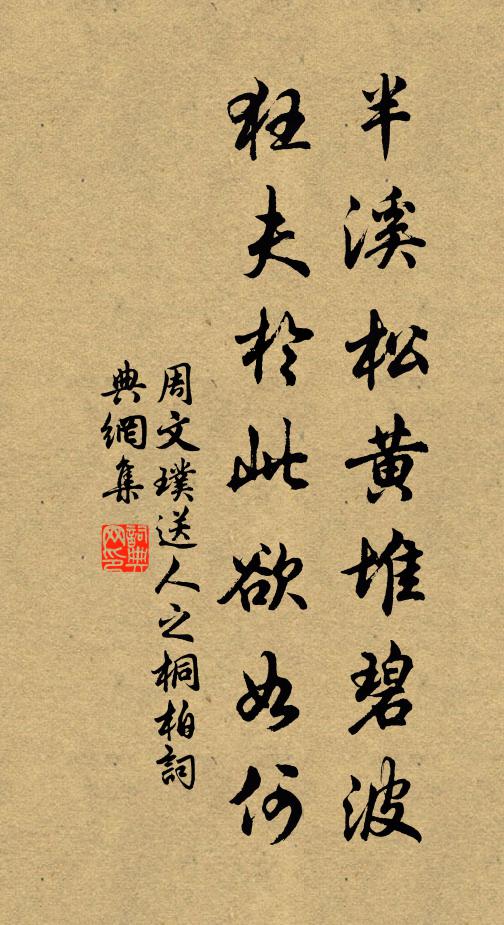 半溪松黄堆碧波
狂夫於此欲如何
周文璞送人之桐柏詞
典網集
詞典网印